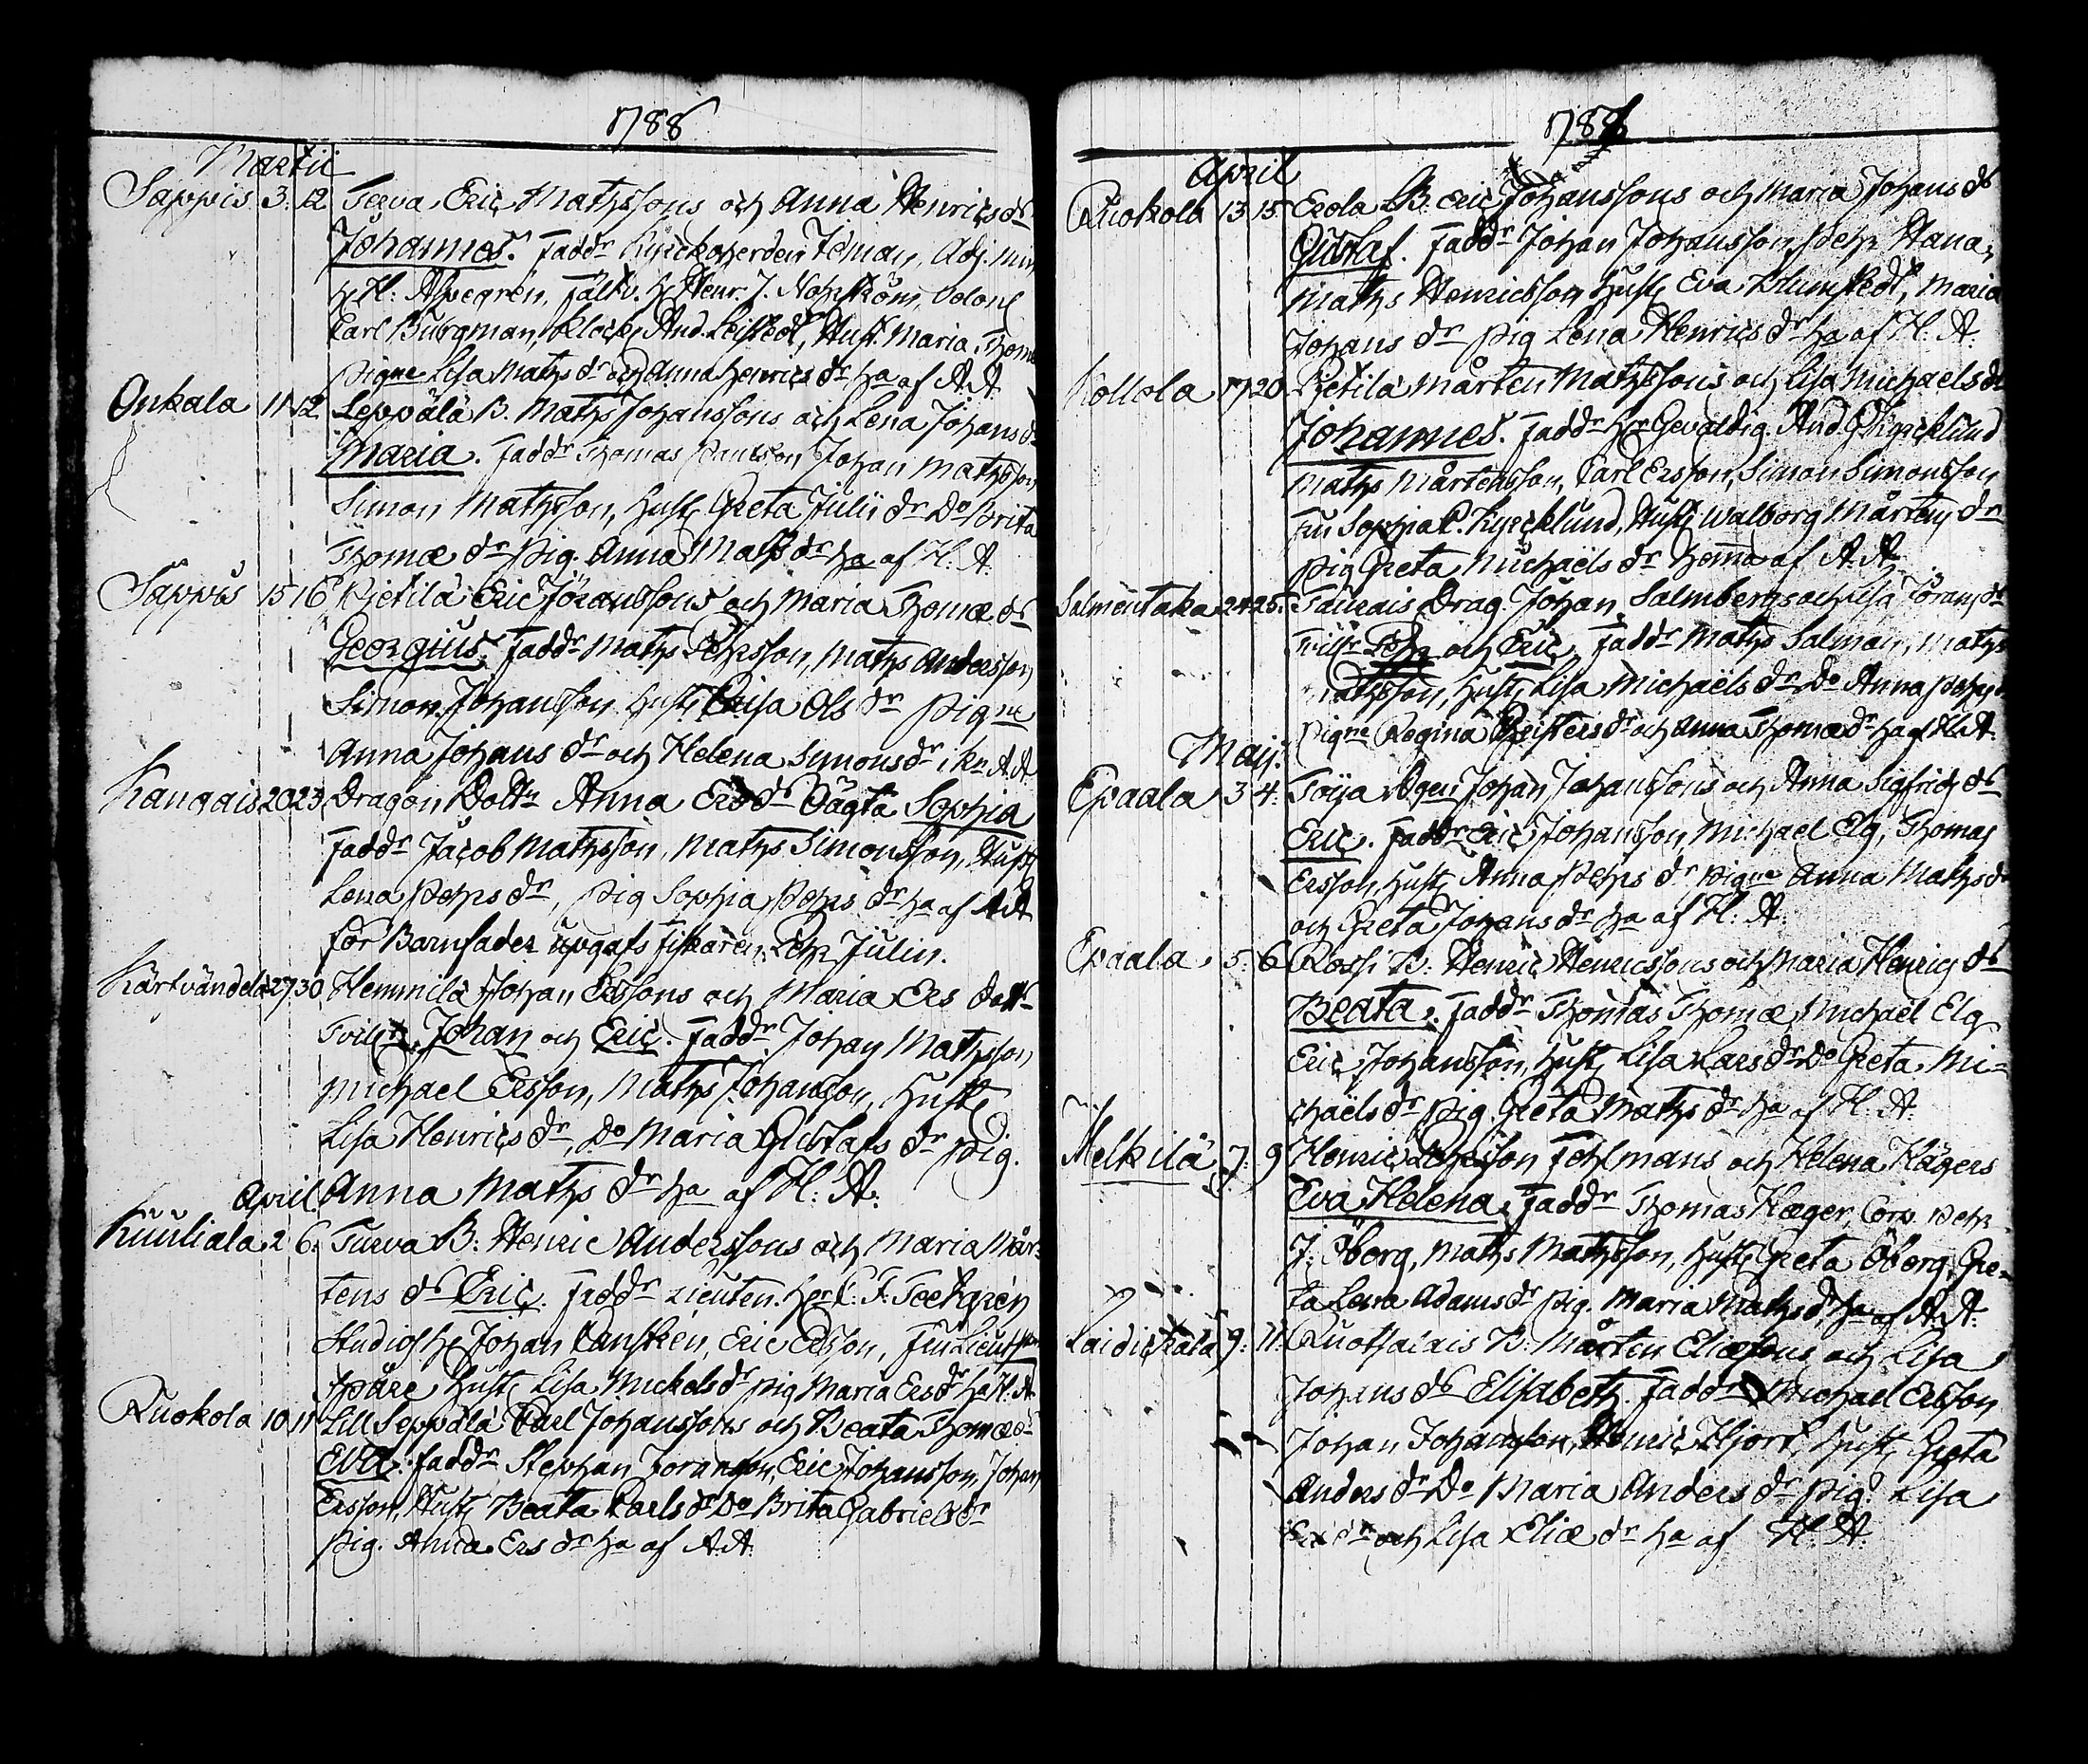 1788
Martii
Sappis 3. 12 Terva Eric Mathssons och Anna Henrics dr
Johannes. Faddr Kyrckoherden Toman, Adj. min
H. Alpegren, Fältv. H Henr. J. Nohrström, Volont
Carl Burgman, Klock. And. Leistedt, Hust. Maria Thom
pigne Lisa Maths dr och Anna Henrics dr ha af A. A.
Onkala 11 12 Seppälä B. Maths Johanssons och Lena Johans dr
Maria. Faddr Thomas Paulsson Johan Mathsson
Simon Mathsson, Hust. Greta Julii dr Do Brita
Thomæ dr pig. Anna Maths dr ha af H. A.
Sappis 15 16 Pietilä Eric Jöranssons och Maria Thomæ dr
Georgius. Fadd̄r Maths Pehrsson, Maths Andersson
Simon Johansson Hust. Caisa Ols dr pigne
Anna Johans dr och Helena Simons dr, ha A. A.
Kangais 20 23 Dragon Dottr Anna Ersdr Oägta Sophia
Faddr Jacob Mathsson, Maths Simonsson, Hust
Lena Pehrs dr, pig Sophia Pehrs dr ha af A A
för Barnfader upgafs fiskaren Pehr Julin.
Kärtvändelä 27 30 Hemmilä Johan Erssons och Maria Ers dottr
Tvillr Johan och Eric. Faddr Johan Mathsson
Michael Ersson, Maths Johansson, Hust
Lisa Henrics dr, Do Maria Gustafs dr pig.
April Anna Maths dr ha af H. A.
Kuuliala 2 6. Turva B. Henric Anderssons och Maria Mår-
tens dr Eric. Faddr Lieuten. Her C. F. Teetgren
Studios H Johan Danskén, Eric Ersson, Fru Lieut
Spåre Hust. Lisa Mickels dr pig Maria Ersdr ha H. A.
Ruokola 10 11 Lill Seppälä Carl Johanssons och Beata Thomæ dr
Eva. Faddr Stephan Joransson, Eric Johansson, Johan
Ersson, Hust. Beata Carls dr Do Brita Gabriels dr
pig. Anna Ers dr ha af A. A.
1788
April
Ruokola 13 15 Erola B. Eric Johanssons och Maria Johans dr
Gustaf. Faddr Johan Johansson, Pehr Hana,
Maths Henricsson Hust. Eva Blumstedt, Maria
Johans dr pig Lena Henrics dr ha af H. A.
Kollola 19 20 Pietilä Mårten Mathssons och Lisa Michaels dr
Johannes. Faddr Hr Gevaldig. And. Kyrcklund
Maths Mårtensson, Carl Ersson, Simon Simonsson
Fru Sophia C. Kyrcklund, Hust. Walborg Mårtens dr
pig Greta Michaels dr hema af A. A.
Salmentaka 24 25. Taurais Drag. Johan Salmbergs och Lisa Jörans dr
Tvillr Pehr och Eric. Faddr Maths Salman, Maths
Mathsson, Hust. Lisa Michaels dr Do Anna Pehrs
pigne Regina Christers dr och Anna Thomæ dr ha af H. A.
Maij.
Epaala 3 4. Töija Johan Johanssons och Anna Sigfrids dr
Eric. Faddr Eric Johansson, Michael Elg, Thomas
Ersson, Hust. Anna Pehrs dr pigne Anna Maths dr
och Greta Johans dr ha af H. A.
Epaala 5. 6 Rossi B. Henric Henricssons och Maria Henrics dr
Beata. Faddr Thomas Thomæ, Michael Elg
Eric Johansson, Hust. Lisa Lars dr Do Greta Mi-
chaels dr pig. Greta Maths dr ha af H. A.
Melkilä 7. 9 Henric Fohlmans och Helena Hägers
Eva Helena. Faddr Thomas Hæger, Corp. Pehr
J. Öberg, Maths Mathsson, Hust. Greta Öberg, Gre-
ta Lena Adams dr pig. Maria Maths dr ha af A. A.
Laidickala 9. 11. Ruotsalais B. Mårten Eliæsons och Lisa
Johans dr Elisabeth. Faddr Michael Ersson
Johan Johansson, Henric Hjort, Hust. Greta
Anders dr Do Maria Anders dr pig. Lisa
Ers dr och Lisa Eliæ dr ha af H. A.